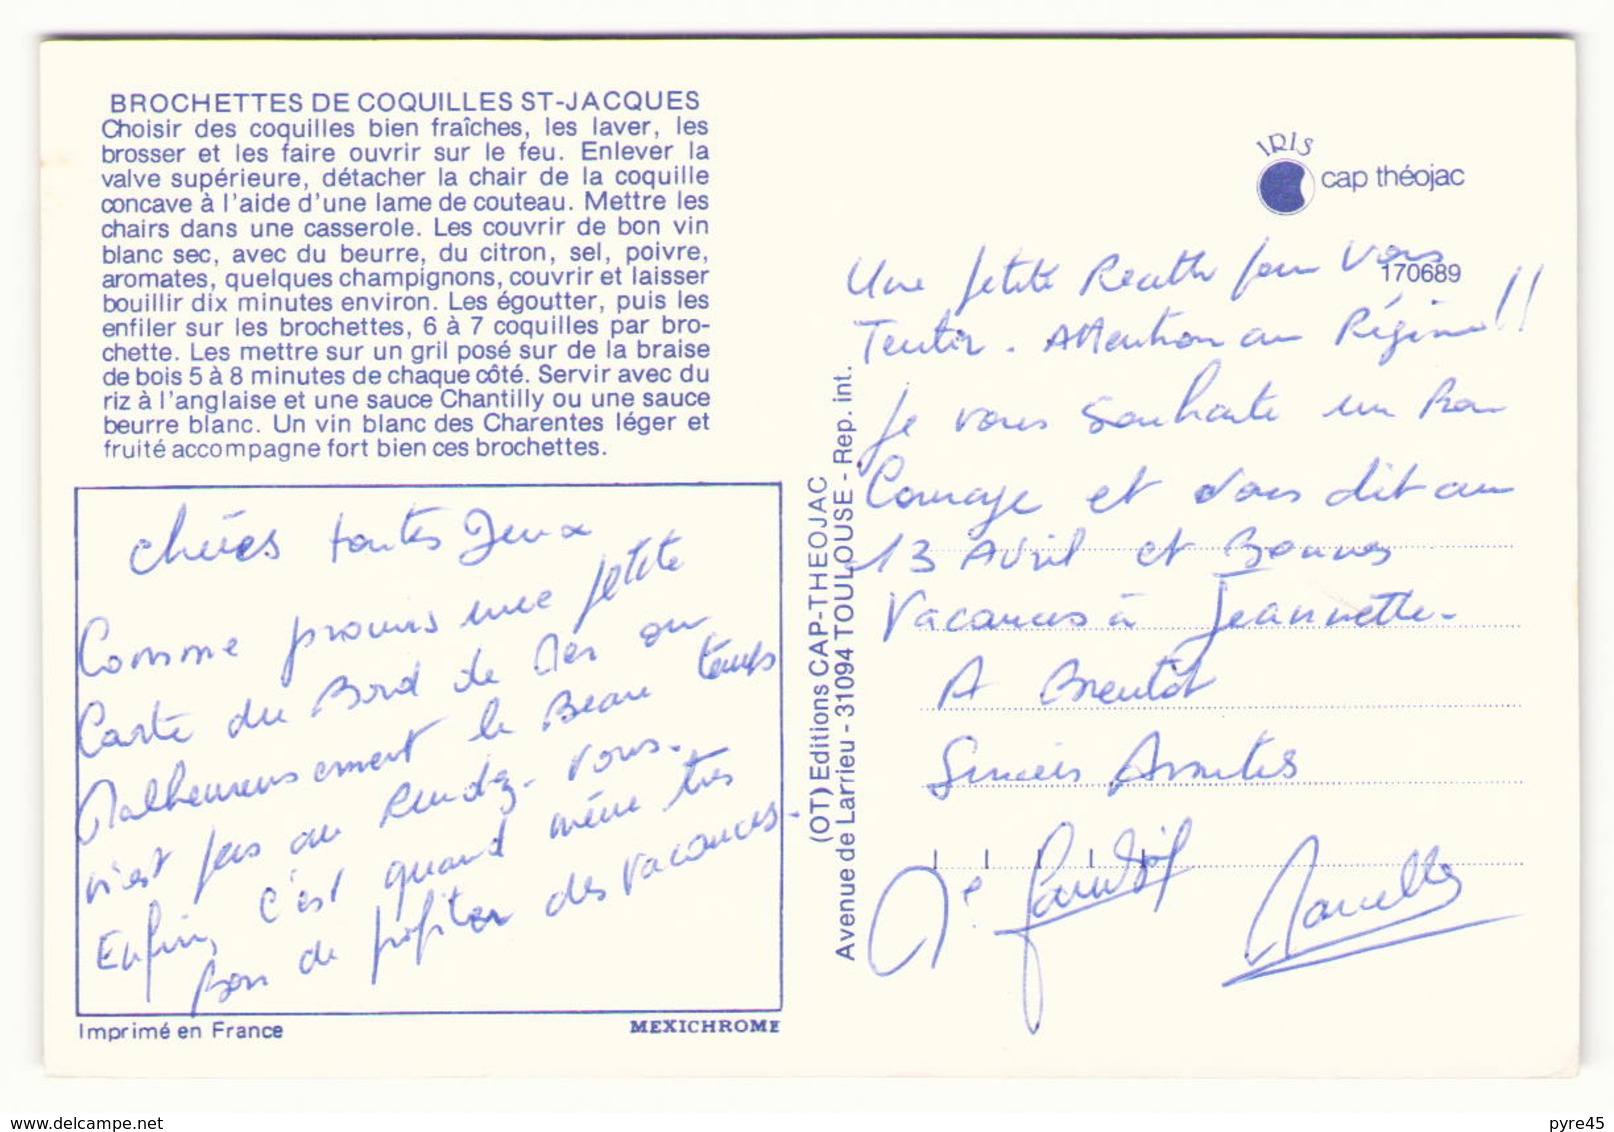 BROCHETTES DE COQUILLES ST-JACQUES
Choisir des coquilles bien fraîches, les laver, les
brosser et les faire ouvrir sur le feu. Enlever la
valve supérieure, détacher la chair de la coquille
concave à l'aide d'une lame de couteau. Mettre les
chairs dans une casserole. Les couvrir de bon vin
blanc sec, avec du beurre, du citron, sel, poivre,
aromates, quelques champignons, couvrir et laisser
bouillir dix minutes environ. Les égoutter, puis les
enfiler sur les brochettes, 6 à 7 coquilles par bro-
chette. Les mettre sur un gril posé sur de la braise
de bois 5 à 8 minutes de chaque côté. Servir avec du
riz à l'anglaise et une sauce Chantilly ou une sauce
beurre blanc. Un vin blanc des Charentes léger et
fruité accompagne fort bien ces brochettes.
chéres toutes Deux
Comme promis une petite
Carte du Bord de Mer ou
Malheureusement le Beau temps
n'est pas au Rendez-vous.
Enfin, c'est quand même très
Bon de profiter des vacances.
Imprimé en France
MEXICHROME
(OT) Editions CAP-THEOJAC
Avenue de Larrieu - 31094 TOULOUSE - Rep. int.
IRIS
cap théojac
170689
Une petite Recette pour Vous
Tenter. Attention au Régime!!
Je vous souhaite un Bon
Courage et vous dit au
13 Avril et Bonnes
Vacances à Jeannette.
A Bientôt
Sincères Amitiés
Marcelle
pyre45